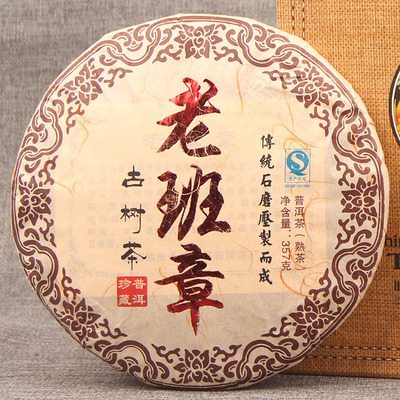 老班章
古树茶
普洱
珍藏
傳統石磨壓製而成
普洱茶(熟茶)
净含量:357克